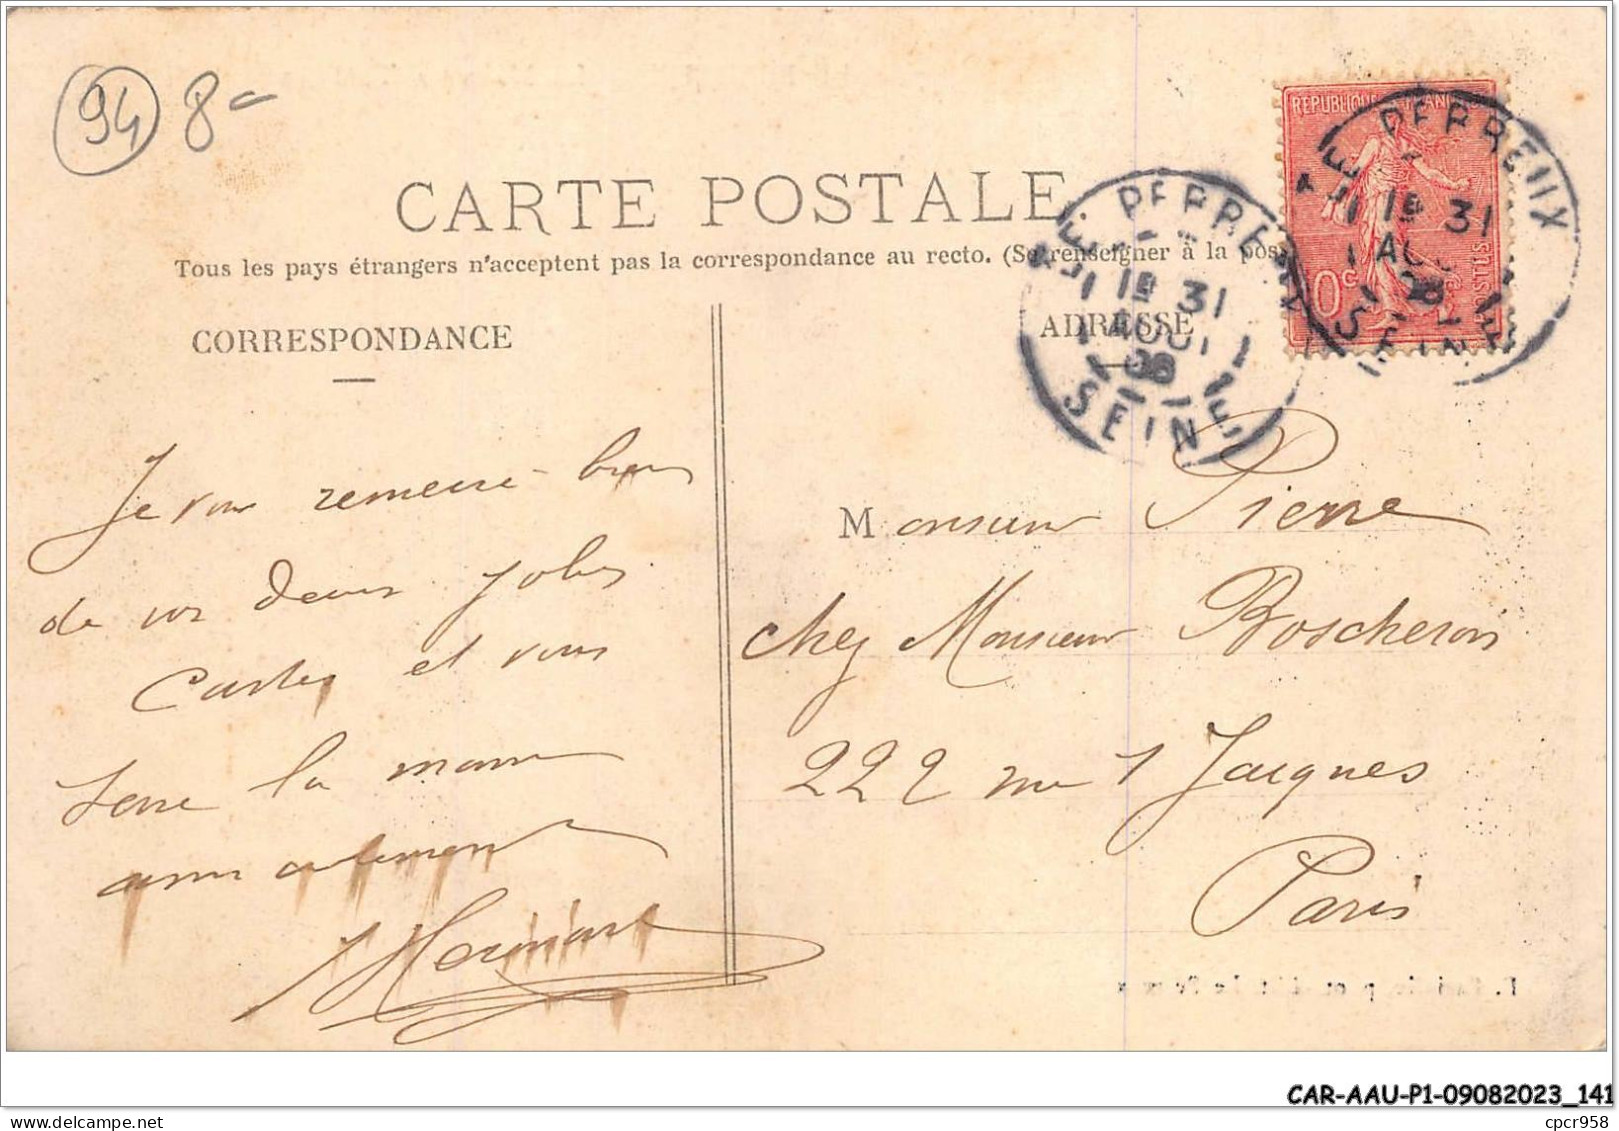 94 8-
RÉPUBLIQUE FRANÇAISE
POSTES
10c
LE PERREUX
1E 31
AOUT
06
SEINE
LE PERREUX
1E 31
AOUT
06
SEINE
CARTE POSTALE
Tous les pays étrangers n'acceptent pas la correspondance au recto. (Se renseigner à la poste)
CORRESPONDANCE
ADRESSE
Je vous remercie bien
de vos deux jolies
Cartes et vous
serre la main
amicalement
Monsieur Pierre
chez Monsieur Boscheron
222 rue St Jacques
Paris
CAR-AAU-P1-09082023_141
cpcr958